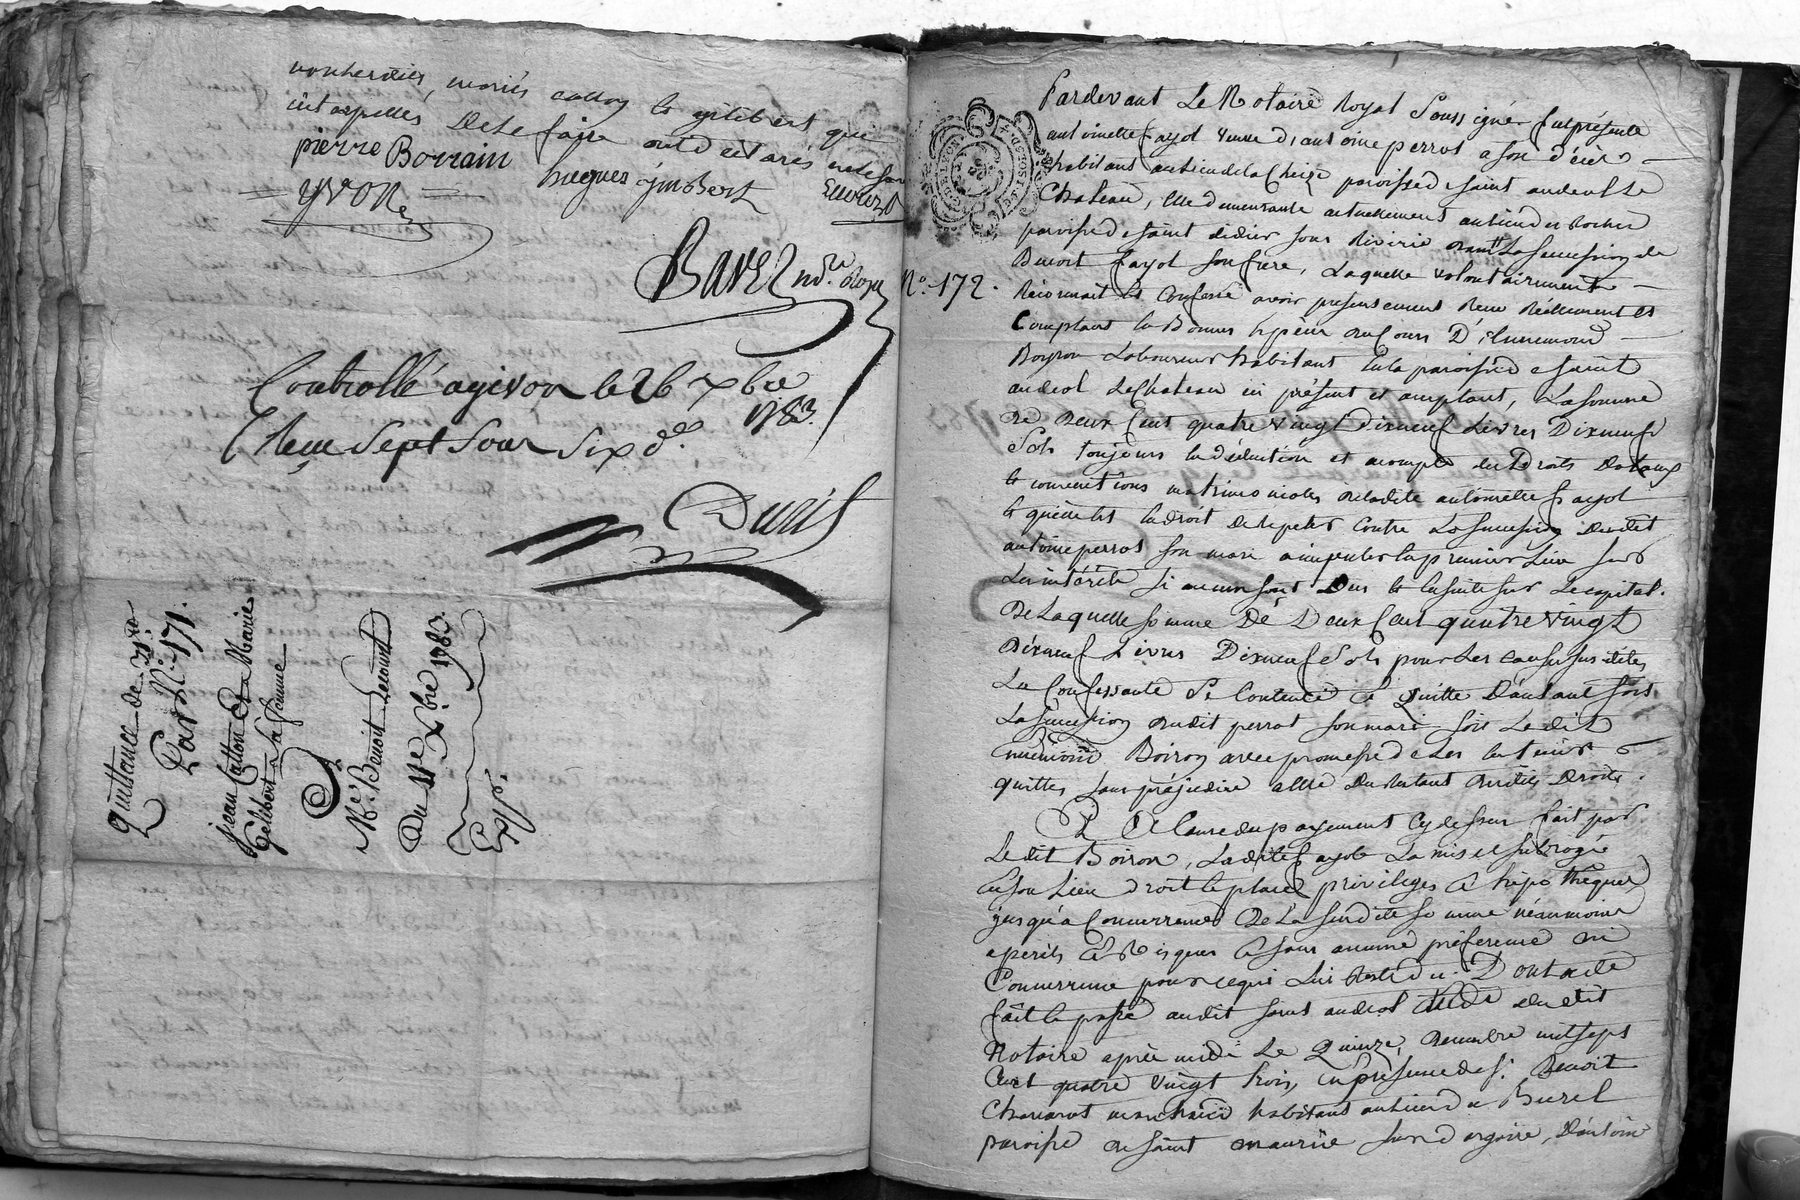 interpellés de le faire ont declarés ne le savoir
pierre Borrain
hugues jmbert
yvon
Bavez no.re Royal
Controllé a givor le 26 xbre
1783.
Reçu sept sous six d.
Duris
quittance de
Par N.o 171.
jean Catton Et Marie
Gelibert sa femme
à
Me. Benoit
Du 11e Xbre 1783.
Exp.
N.o 172.
Pardevant Le Notaire Royal soussigné fut présente
antoinette fayol veuve d'antoine perrot a son décès
habitant au lieu de la Cheize paroisse de saint andeol le
Chateau, elle demeurante actuellement au lieu du Rocher
paroisse de saint didier sous Riverie la succession de
Benoit fayol son frère, Laquelle volontairement
Reconnait et Confesse avoir presentement Receu Réellement et
Comptant en Bonnes Espèces au Cours D'Ennemond
Boyron Laboureur habitant en la paroisse de saint
andeol Le Chateau ici présent et acceptant, La somme
De Deux Cent quatre vingt Dixneuf Livres Dixneuf
sols toujours en déduction et acompte des Droits
et conventions matrimoniales de ladite antoinette fayol
qu'elle est en droit de répéter contre La succession dudit
antoine perrot son mari a imputer en premier Lieu sur
Les intérêts si aucuns sont Dus et ensuite sur Le capital.
De Laquelle somme De Deux Cent quatre vingt
Dixneuf Livres Dixneuf sols pour Les causes susdites
La Confessante se Contente et Quitte D'autant soit
La succession dudit perrot son mari soit Le dit
ennemond Boiron avec promesse de Les en tenir
quittes sans préjudice a elle Du Restant Desdits Droits.
Et A Cause du payement Cy dessus fait par
Ledit Boiron, Ladite fayol L'a mis et subrogé
En son Lieu droit et place privileges et hipothèques
jusqu'à Concurrence De La susdite somme néanmoins
a perils et Risques et sans aucune préférence ni
Concurrence pour ce qui Lui Reste du. Dont acte
fait et passé audit saint andeol Etude Dudit
Notaire après midi Le Quinze décembre mil sept
Cent quatre vingt trois, en présence de s.r Benoit
Chavanot marchand habitant au lieu de Burel
paroisse de saint maurice sur dargoire, D'antoine